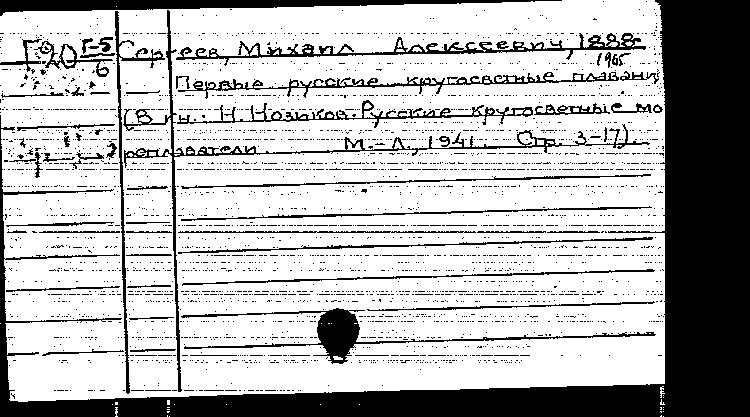 Г20 Г-5/6 Сергеев, Михаил Алексеевич, 1888-
1965
Первые русские кругосветные плавани
(В кн.: Н. Нозиков. Русские кругосветные мо
реплаватели. М.-Л., 1941. Стр. 3-17).